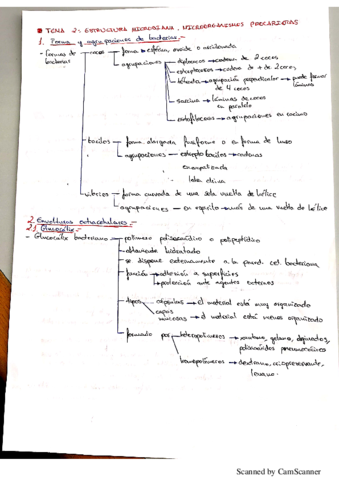 TEMA 2: ESTRUCTURA MICROBIANA, MICROORGANISMOS PROCARIOTAS
1. Forma y agrupaciones de bacterias.-
- Formas de bacterias
cocos → forma → esférica, ovoide o arriñonada
agrupaciones → diplococos → cadena de 2 cocos
estreptococos → cadena de + de 2 cocos
tétrada → agrupación perpendicular → puede formar láminas
de 4 cocos
sarcina → láminas de cocos
en paralelo
estafilococos → agrupaciones en racimo
bacilos → forma alargada fusiforme o en forma de
agrupaciones → estreptobacilos → cadenas
en empalizada
letra china
vibrios → forma curvada de una sola vuelta de hélice
agrupaciones → en espirilo → más de una vuelta de hélice
2. Envolturas extracelulares.-
2.1. Glucocálix.-
- Glucocálix bacteriano → polímero polisacarídico o polipeptídico
altamente hidratado
se dispone externamente a la pared cel. bacteriana
función → adhesión a superficies
protección ante agentes externos
tipos → cápsulas → el material está muy organizado
capas
mucosas → el material está menos organizado
formado por → heteropolímeros →
polisacáridos pneumocócicos
homopolímeros → dextrano,
levano.
Scanned by CamScanner